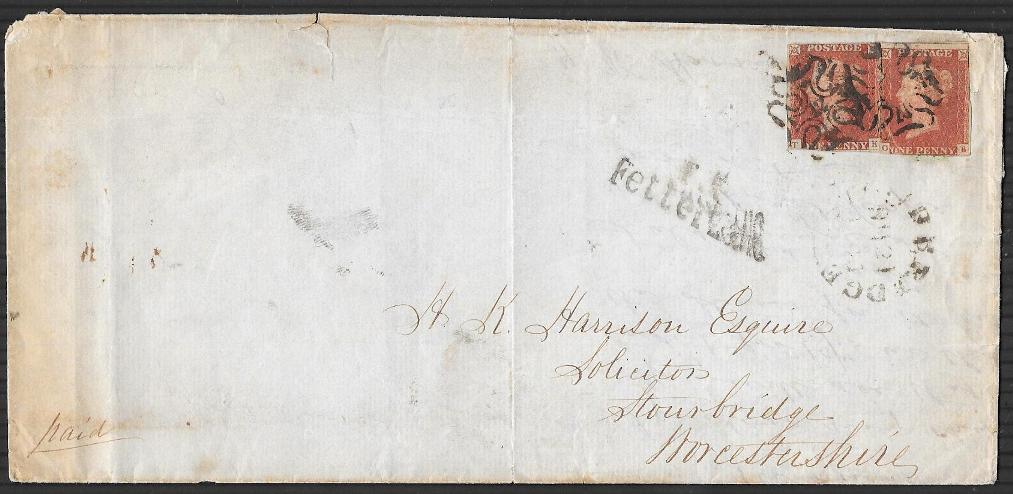 POSTAGE
T PENNY K
O ONE PENNY K
T.P
Fetter Lane
H. K. Harrison Esquire
Solicitor
Stourbridge
Worcestershire
paid